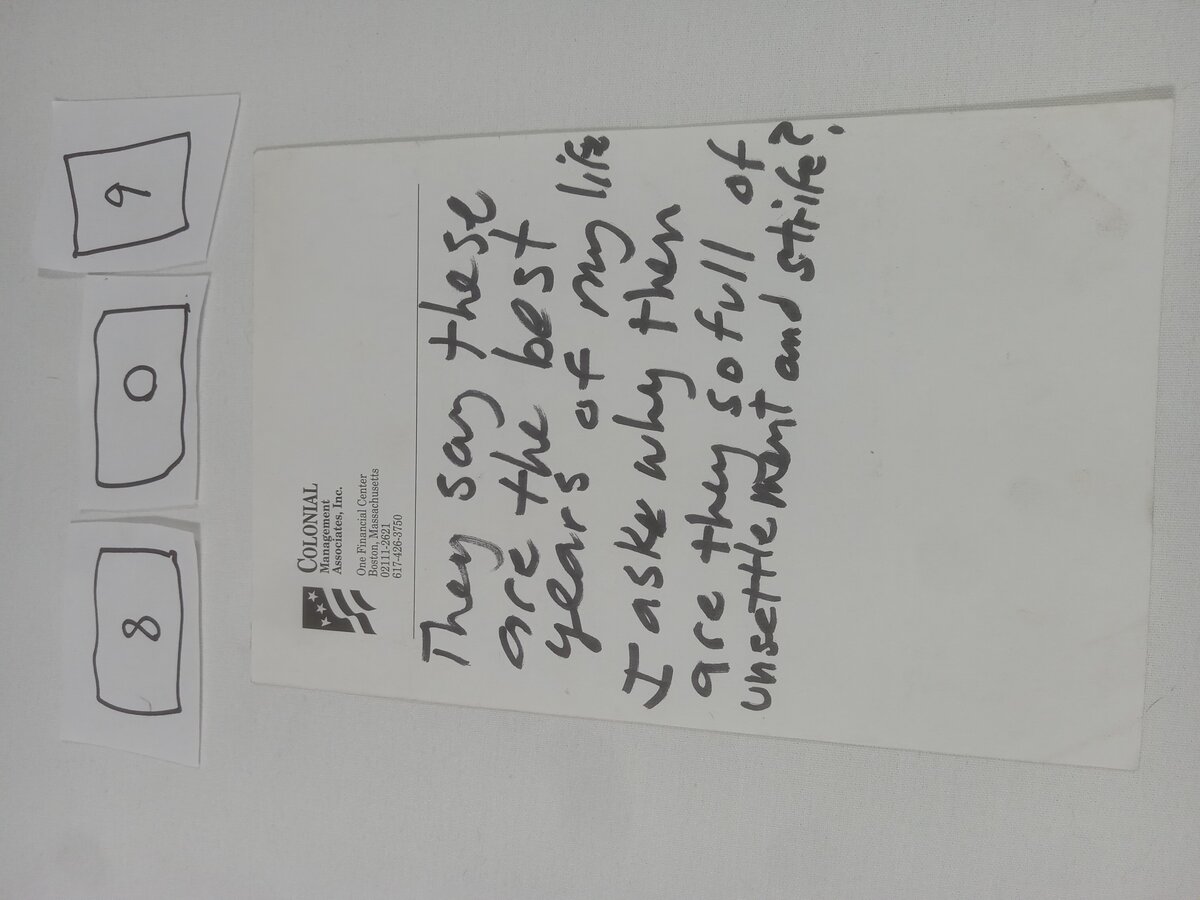 8 0 9
COLONIAL
Management
Associates, Inc.
One Financial Center
Boston, Massachusetts
02111-2621
617-426-3750
They say these
are the best
years of my life
I ask why then
are they so full of
unsettlement and strife?